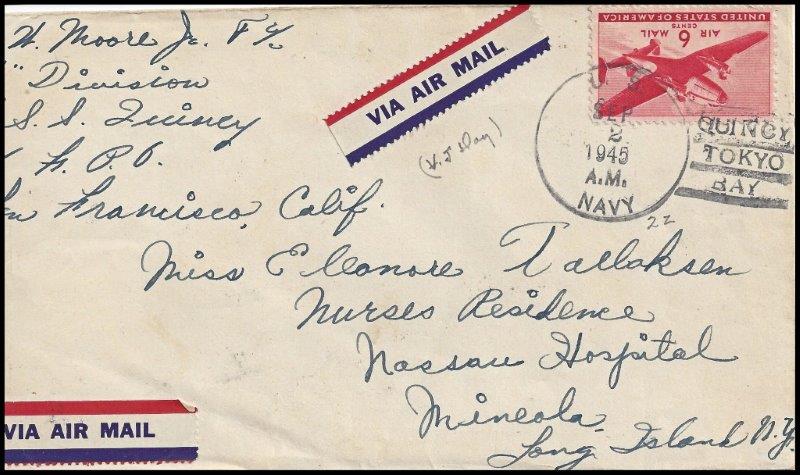 W. Moore Jr. F 1/c
" Division
S. S. Quincy
F. P. O.
San Francisco, Calif.
VIA AIR MAIL
(V.J Day)
UNITED STATES OF AMERICA
AIR 6 MAIL
CENTS
SEP
2
1945
A.M.
NAVY
QUINCY
TOKYO
BAY
22
Miss Elleonore Tallaksen
Nurses Residence
Nassau Hospital
Mineola
Long Island N.Y.
VIA AIR MAIL